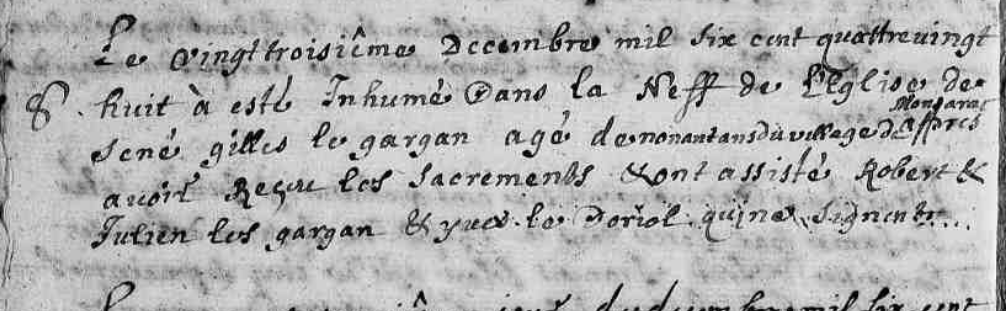 Le vingt troisiême Decembre mil six cent quattrevingt
8. huit à esté Inhumé Dans la Neff de L'Eglise de
Sené gilles le gargan agé de nonant ans du village de Monsarac affpres
avoir Reçeu les Sacrements & ont assisté Robert &
Julien les gargan & yves le Doriol quine Signent...